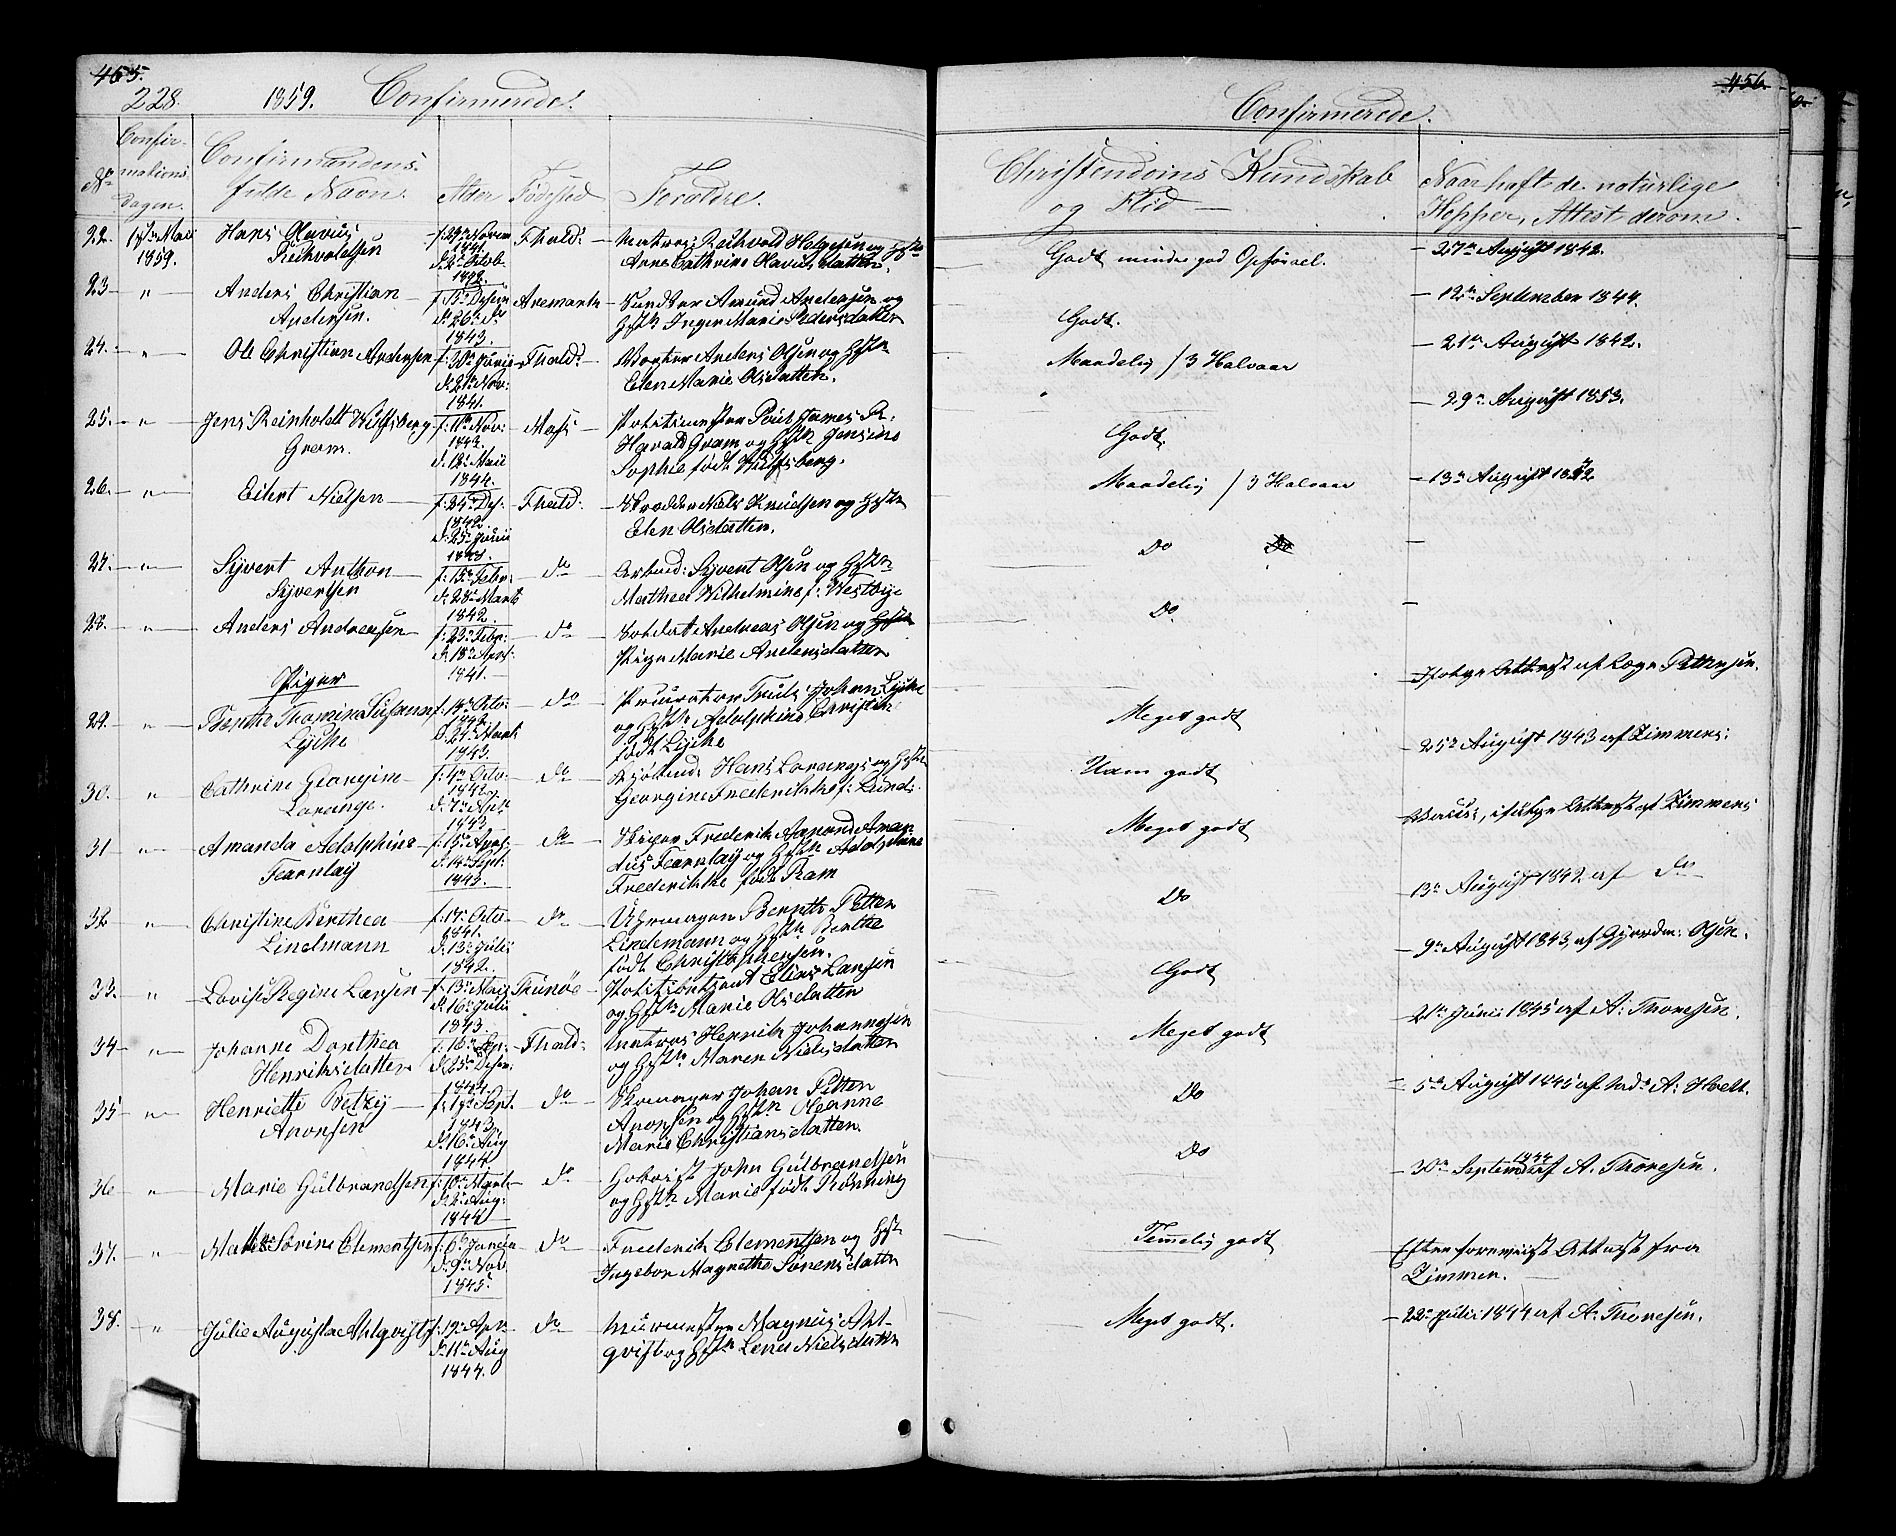 455.
228. 1859. Confirmerede.
No
Confir-
mations
dagen.
Confirmandens
fulde Navn.
Alder
Fødested
Forældre.
22. 15de Mai
1859.
Hans Olavus
Reichvoldsen
f: 29de Novem
1841.
d: 2de Octob.
1842.
Fhald:
Matros: Reichvold Helgesen og Hstr
Anne Cathrine Olavisdatter.
23 " Anders Christian
Andersen.
d: 26de Do
1843.
Aremark
Amund Andersen og
Hstr Inger Marie Pedersdatter
24. " Ole Christian Andersen
f: 30de Junie
d: 21de Nov:
1841.
Fhald:
Anders Olsen og Hstr
Elen Marie Olsdatter.
25. " Jens Reinholdt Wulfsberg
Gram.
f: 11te Nov:
1843.
d: 12te Mai
1844.
Moss
Politimester Poul James R.
Harald Gram og Hstr Jensine
Sophie født Wulfsberg.
26. " Eilert Nielsen
f: 24de Des.
1842.
d: 25de Junii
Fhald:
Skrædder Niels Knudsen og Hstr
Elen Olsdatter.
27. " Syvert Anthon
Syvertsen
f: 15de Febr:
d: 28de Marts
1842.
do
Arbeid: Syvert Olsen og Hstr
Mathea Wilhelmine f: Westbye
28. " Anders Andreasen
f: 23de Febr:
d: 18de Apr:
1841.
do
Soldat Andreas Olsen og
Pige Marie Andersdatter
Piger
29. " Susanne
Lycke
f: 14de Octo:
1842.
d: 24de Mart
1843.
do
Procurator Truls Johan Lycke
og Hstr Adolphine Christine
født Lycke
30. " Cathrine Georgine
Lorange.
f: 4de Octo:
1842.
d: 7de Apr
1843
do
Hans Lorange og Hstr
Georgine Frederikke f: Lund:
31 " Amanda Adolphine
Fearnlay
f: 15de Apr:
d: 14de Sept:
1843.
do
Skiper Frederik Aamond Aman-
dus Fearnlay og Hstr Adolphine
Frederikke født Ram
32 " Christine Berthea
Lindemann
f: 17de Octo
1841.
d: 13de Juli:
1842.
do
Uhrmager Bernth Petter
Lindemann og Hstr Berthe
født Christophersen.
33. " Lovise Regine Larsen
f: 13de Mai
d: 16de Julii
1843.
Thunøe
Politibetjent Elias Larsen
og Hstr Marie Olsdatter
34 " Johanne Dorthea
Henriksdatter
f: 16de Sep:
d: 25de Desem:
1843.
Fhald:
Matros Henrik Johannesen
og Hstr Maren Nielsdatter
35 " Henriette Betzy
Aronsen
f: 19de Sept.
1843.
d: 16de Aug
1844.
do
Skomager Johan Petter
Aronsen og Hstr Oleanne
Marie Christiansdatter.
36 " Marie Gulbrandsen
f: 10de Mart
d: 2de Aug:
1844
do
Hovrist John Gulbrandsen
og Hstr Marie født Rønning
37. " Mathe Sørine Clementsen
f: 6te Januar
d: 9de Nov
1845.
do
Frederik Clementsen og Hst
Ingebor Magrethe Sørensdatter
38. " Julie Augusta Ahlqvist
f: 19de Apr
d: 11te Aug
1844.
do
Murmester Magnus Ahl-
qvist og Hstr Lena Nielsdatter
456.
Confirmerede.
Christendoms Kundskab
og Flid
Naar hafte de naturlige
Kopper, Attest derom.
Godt mindre god Opførsel.
27de August 1842.
Godt.
12te September 1844.
Maadelig / 3 Halvaar
21de August 1842.
Godt.
29de August 1853.
Maadelig / 3 Halvaar
13de August 1842
Do Do
Do.
Meget godt
Ifølge Attest af Læge Pettersen.
Kam godt
25de August 1843 af Zimmers:
Meget godt
Vacus:, ifølge Attest af Zimmers
Do
13de August 1842 af Do
Godt
9de August 1843, af Olsen.
Meget godt
21de Juni 1845 af A: Thoresen.
Do
5te August 1845 af Md: A: Hoelt.
Do
30te September 1844 af A. Thoresen.
Temelig godt
Efter foreviist Attest fra
Zimmer.
Meget godt.
22de Julii 1844 af A: Thoresen.